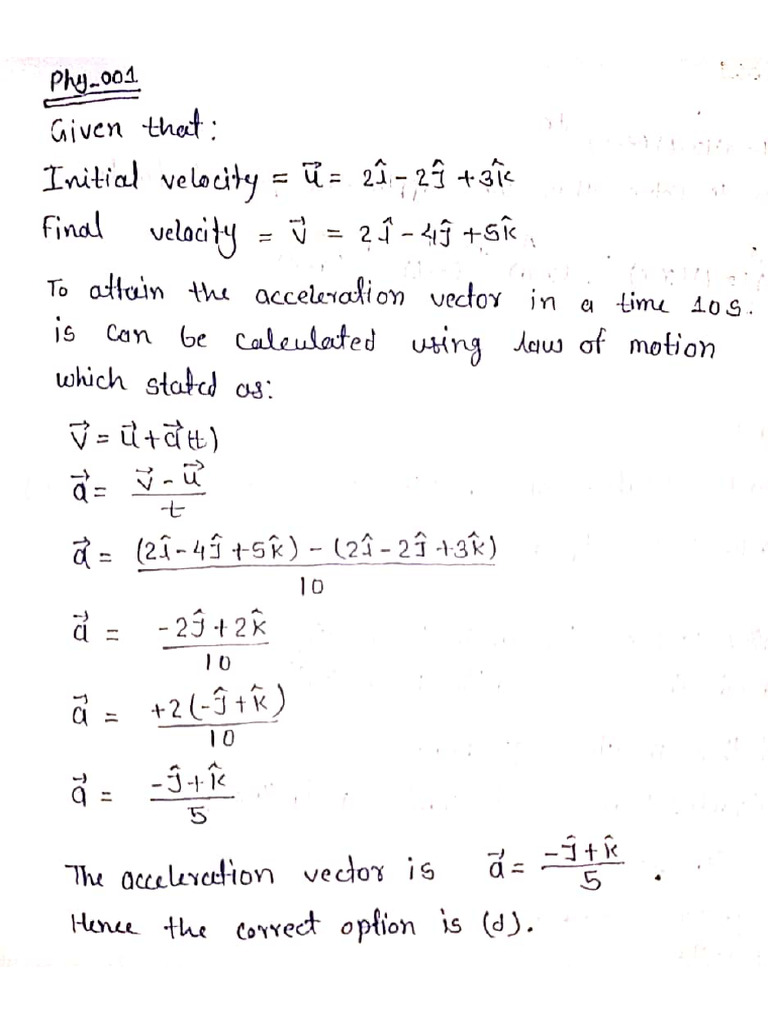 Phy_001
Given that:
Initial velocity = u⃗ = 2î - 2ĵ + 3k̂
Final velocity = v⃗ = 2î - 4ĵ + 5k̂
To attain the acceleration vector in a time 10s.
is can be calculated using law of motion
which stated as:
v⃗ = u⃗ + a⃗(t)
a⃗ = (v⃗ - u⃗)/t
a⃗ = ((2î - 4ĵ + 5k̂) - (2î - 2ĵ + 3k̂))/10
a⃗ = (-2ĵ + 2k̂)/10
a⃗ = +2(-ĵ + k̂)/10
a⃗ = (-ĵ + k̂)/5
The acceleration vector is a⃗ = (-ĵ + k̂)/5 .
Hence the correct option is (d).